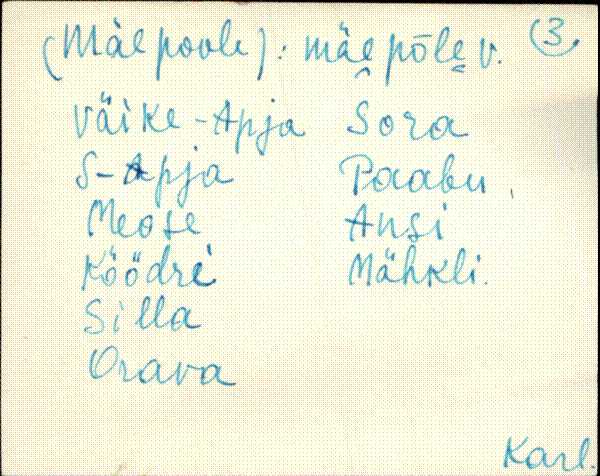 (Mäe poole): mäe põle v. 3
Väike-Apja
S-Apja
Meose
Köödre
Silla
Orava
Sora
Paabu
Ansi
Mähkli.
Karl.